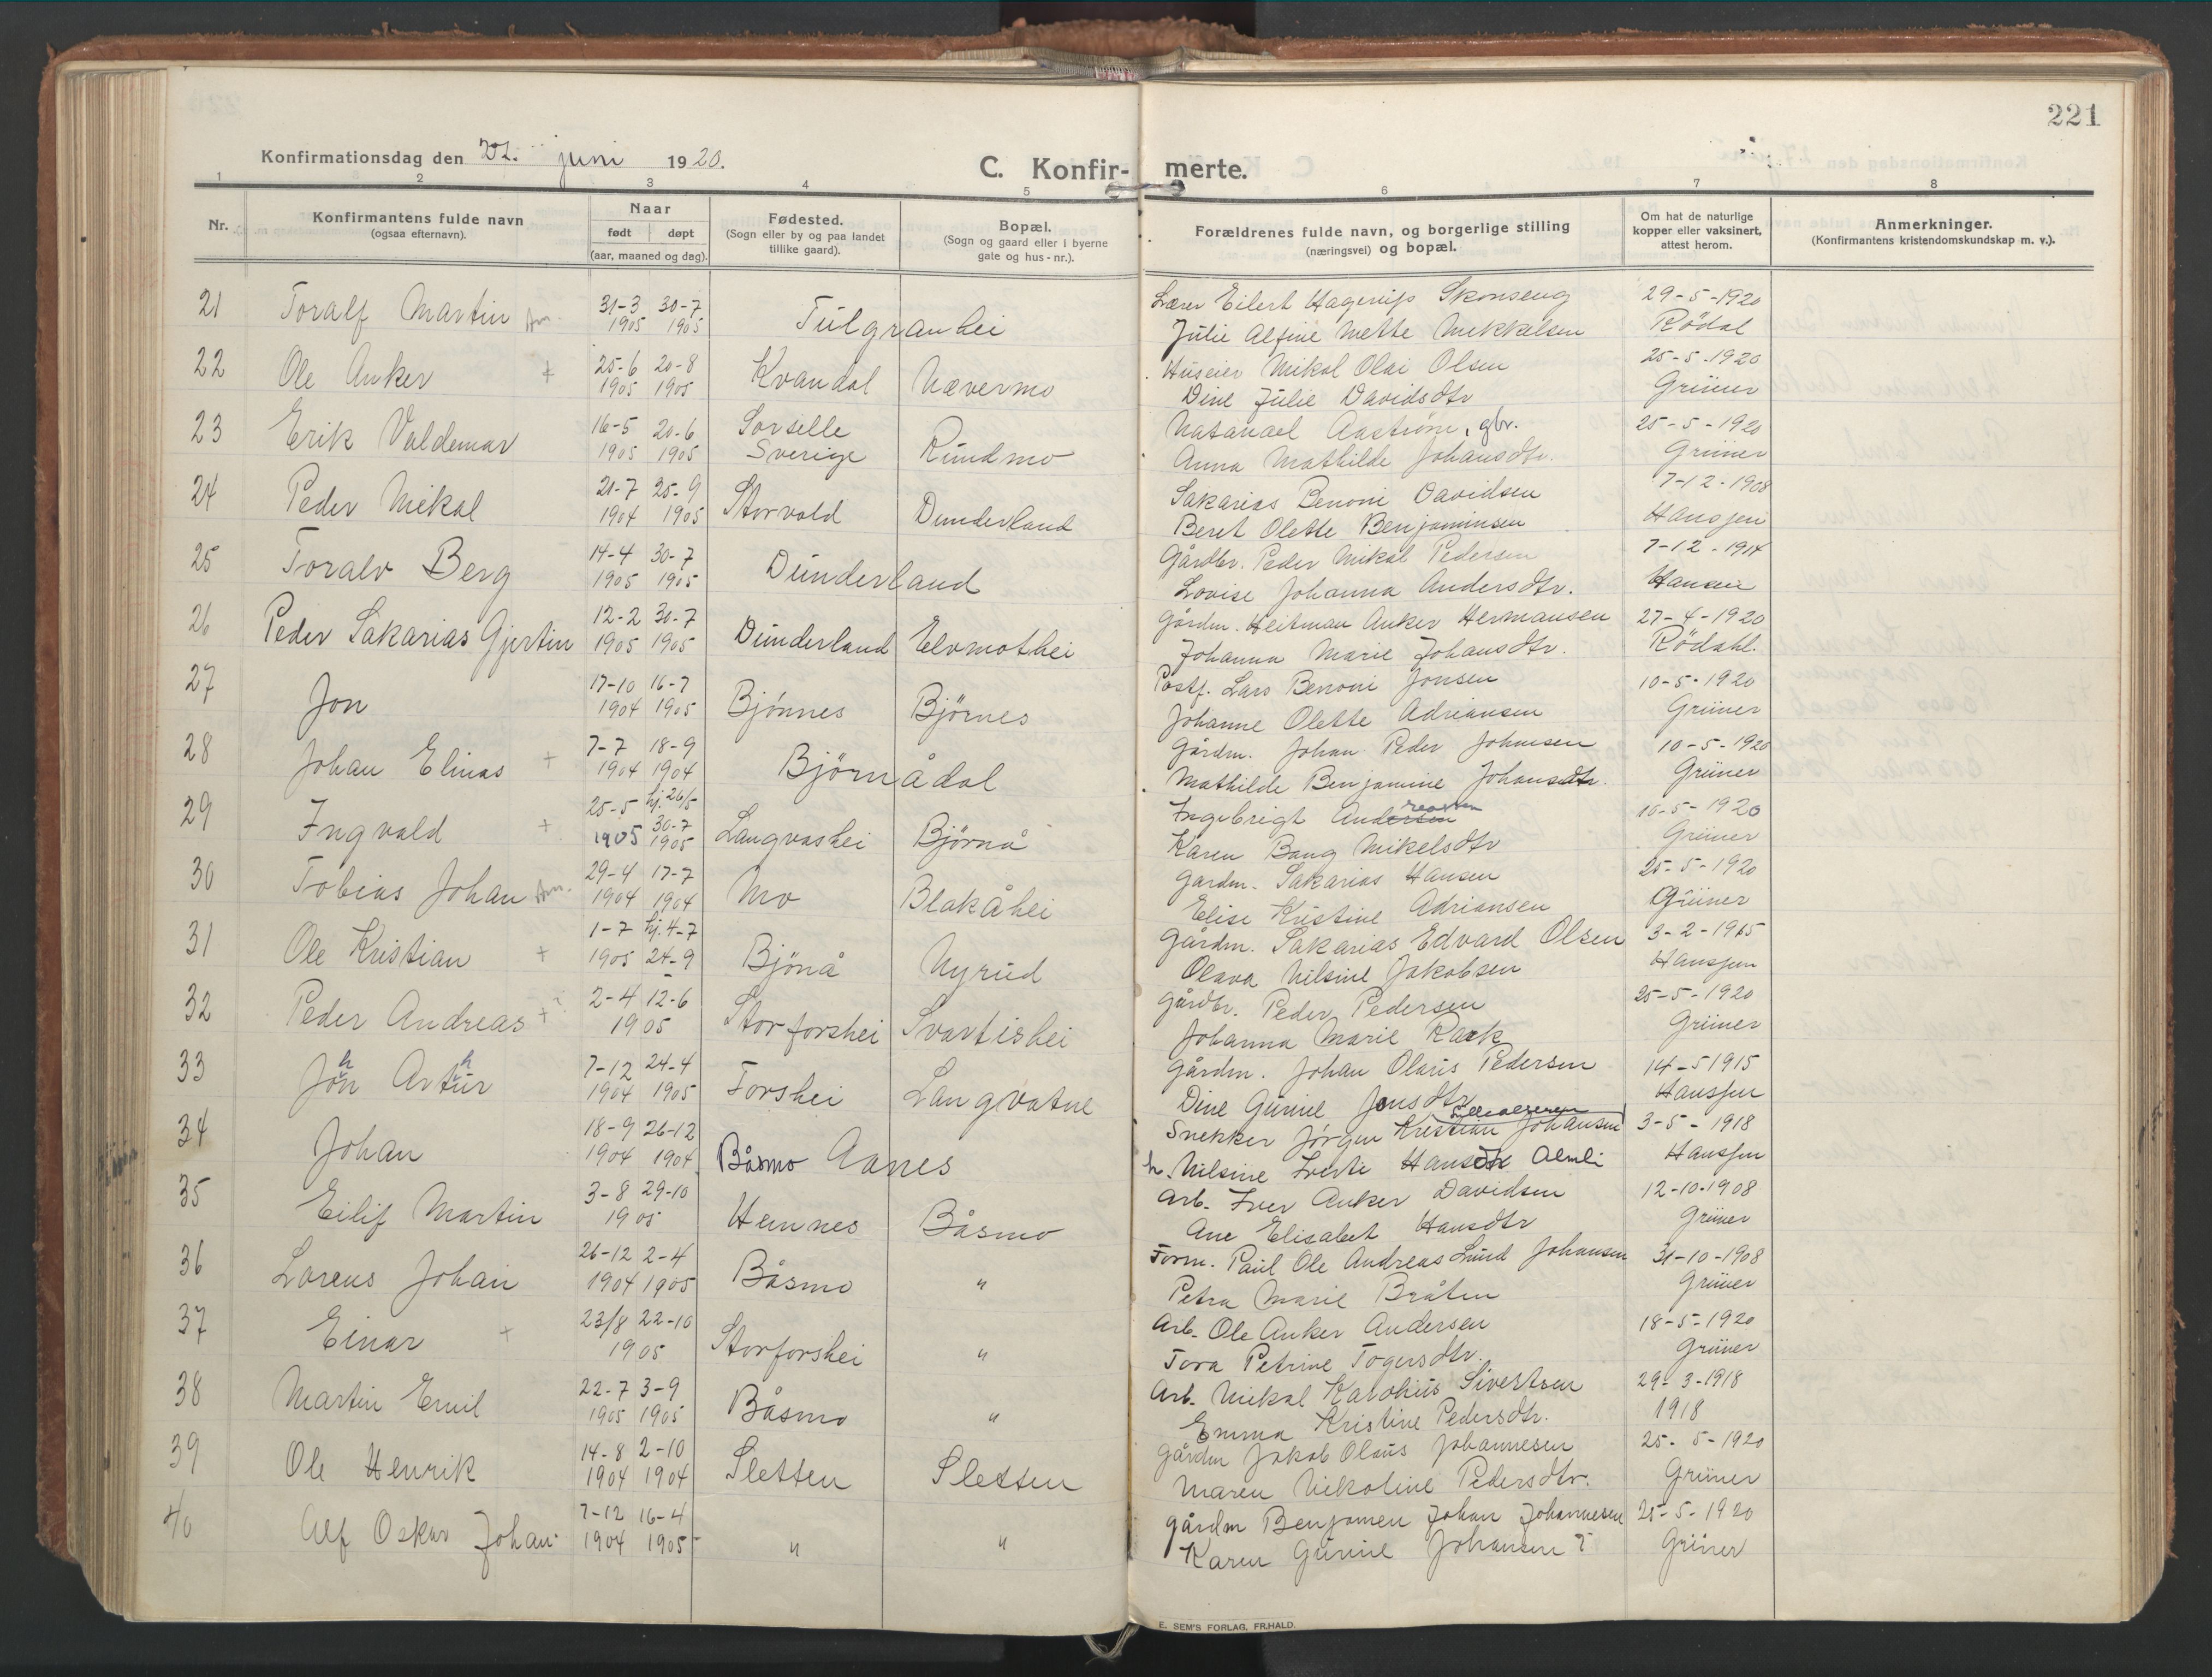 221
Konfirmationsdag den juni 1920.
C. Konfirmerte.
1 2 3 4 5 6 7 8
Nr. Konfirmantens fulde navn (ogsaa efternavn). Naar født døpt (aar, maaned og dag). Fødested. (Sogn eller by og paa landet tillike gaard). Bopæl. (Sogn og gaard eller i byerne gate og hus-nr.). Forældrenes fulde navn, og borgerlige stilling (næringsvei) og bopæl. Om hat de naturlige kopper eller vaksinert, attest herom. Anmerkninger. (Konfirmantens kristendomskundskap m. v.).
21 Toralf Martin 31-3 30-7 Tulgranhei Lærer Eilert Hagerups Skonseng 29-5-1920
1905 1905 Julie Alfine Mette Mikkelsen Rödal
22 Ole Anker + 25-6 20-8 Kvandal Nævermo Huseier Mikal Olai Olsen 25-5-1920
1905 1905 Dine Julie Davidsdtr Grüner
23 Erik Valdemar 16-5 20-6 Sorselle Rundmo Natanael Aastrøm, gbr. 25-5-1920
1905 1905 Sverige Anna Mathilde Johansdtr. Grüner
24 Peder Mikal 21-7 25-9 Storvold Dunderland Sakarias Benoni Davidsen 7-12-1908
1904 1905 Beret Olette Benjaminsen Hanssen
25 Toralv Berg 14-4 30-7 Dunderland Gårdbr. Peder Mikal Pedersen 7-12-1914
1905 1905 Lovise Johanna Andersdtr. Hansen
26 Peder Sakarias Gjertin 12-2 30-7 Dunderland Elvmothei Gårdm. Heitman Anker Hermansen 27-4-1920
1905 1905 Johanna Marie Johansdtr. Rödahl.
27 Jon 17-10 16-7 Bjönnes Björnes Postf. Lars Benoni Jonsen 10-5-1920
1904 1905 Johanne Olette Adriansen Grüner
28 Johan Elinas + 7-7 18-9 Björnådal Gårdm. Johan Peder Johnsen 10-5-1920
1904 1904 Mathilde Benjamine Johansdtr. Grüner
29 Ingvald + 25-5 hj. 26/5 Langvashei Björnå Ingebrigt Andersen reassen 10-5-1920
1905 30-7 1905 Karen Bang Mikelsdtr Grüner
30 Tobias Johan 29-4 17-7 Mo Blakåhei Gardm. Sakarias Hansen 25-5-1920
1904 1904 Elise Kristine Adriansen Grüner
31 Ole Kristian + 1-7 hj. 4-7 Bjönå Nyrud Gårdm. Sakarias Edvard Olsen 3-2-1915
1905 24-9 Olava Nilsine Jakobsen Hanssen
32 Peder Andreas + 2-4 12-6 Storforshei Svartishei Gårdbr. Peder Pedersen 25-5-1920
1905 Johanna Marie Grüner
33 Jon Artur h h 7-12 24-4 Forshei Langvatne Gårdm. Johan Olaus Pedersen 14-5 1915
1904 1905 Dine Gurine Jonsdtr Hanssen
34 Johan 18-9 26-12 Båsmo Aanes Snekker Jörgen Kristian Johansen 3-5-1918
1904 1904 h. Nilsine Hansdtr Almli Hanssen
35 Eilif Martin 3-8 29-10 Hemnes Båsmo Arb. Iver Anker Davidsen 12-10-1908
1905 Ane Elisabet Hansdtr Grüner
36 Lorens Johan 26-12 2-4 Båsmo " Form. Paul Ole Andreas Lund Johansen 31-10-1908
1904 1905 Petra Marie Bråten Grüner
37 Einar + 23/8 22-10 Storforshei " Arb. Ole Anker Andersen 18-5-1920
1905 Tora Petrine Togersdtr. Grüner
38 Martin Emil 22-7 3-9 Båsmo " Arb. Mikal Karolius Sivertsen 29-3-1918
1905 1905 Emma Kristine Pedersdtr. 1918
39 Ole Henrik 14-8 2-10 Sletten Sletten Gårdm Jakob Olaus Johannesen 25-5-1920
1904 1904 Maren Nikoline Pedersdtr. Grüner
40 Alf Oskar Johan 7-12 16-4 " " Gårdm Benjamen Johan Johannesen 25-5-1920
1904 1905 Karen Gurine Johansen Grüner
E. SEM'S FORLAG, FR.HALD.